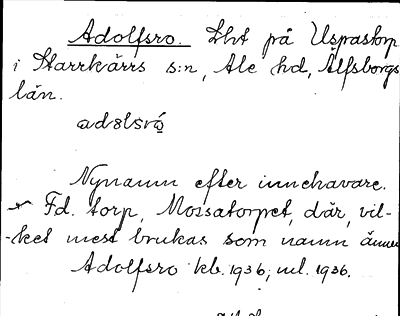 Adolfsro. Lht på Uspastorp
i Starrkärrs s:n, Ale hd, Älfsborgs
län.
adɷlsró̱
Nynamn efter innehavare.
Fd. torp, Mossatorpet, där, vil-
-ket mest brukas som namn ännu
Adolfsro kb. 1936; ml. 1936.